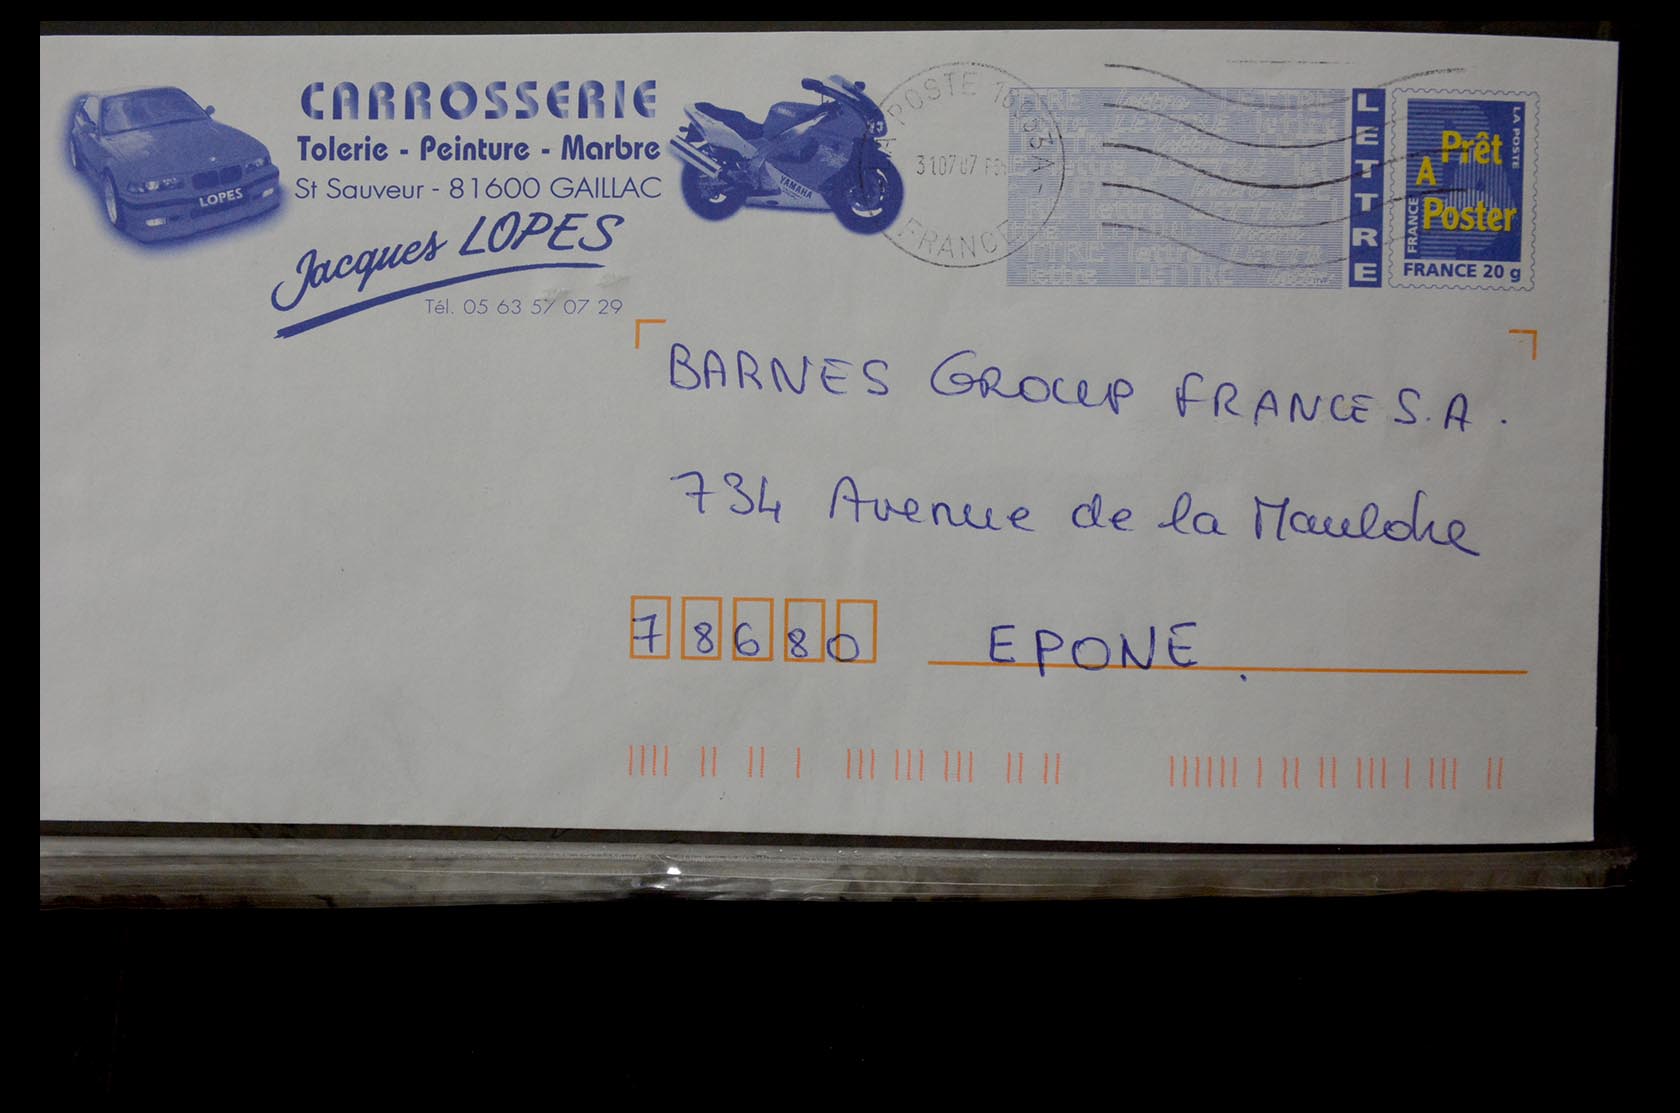 CARROSSERIE
Tolerie - Peinture - Marbre
St Sauveur - 81600 GAILLAC
Jacques LOPES
Tél. 05 63 57 07 29
LOPES
YAMAHA
POSTE
33A -
31 07 07
FRANCE
LETTRE
LA POSTE
Prêt
A
Poster
FRANCE
FRANCE 20 g
BARNES GROUP FRANCE S.A.
734 Avenue de la Mauldre
78680 EPONE.